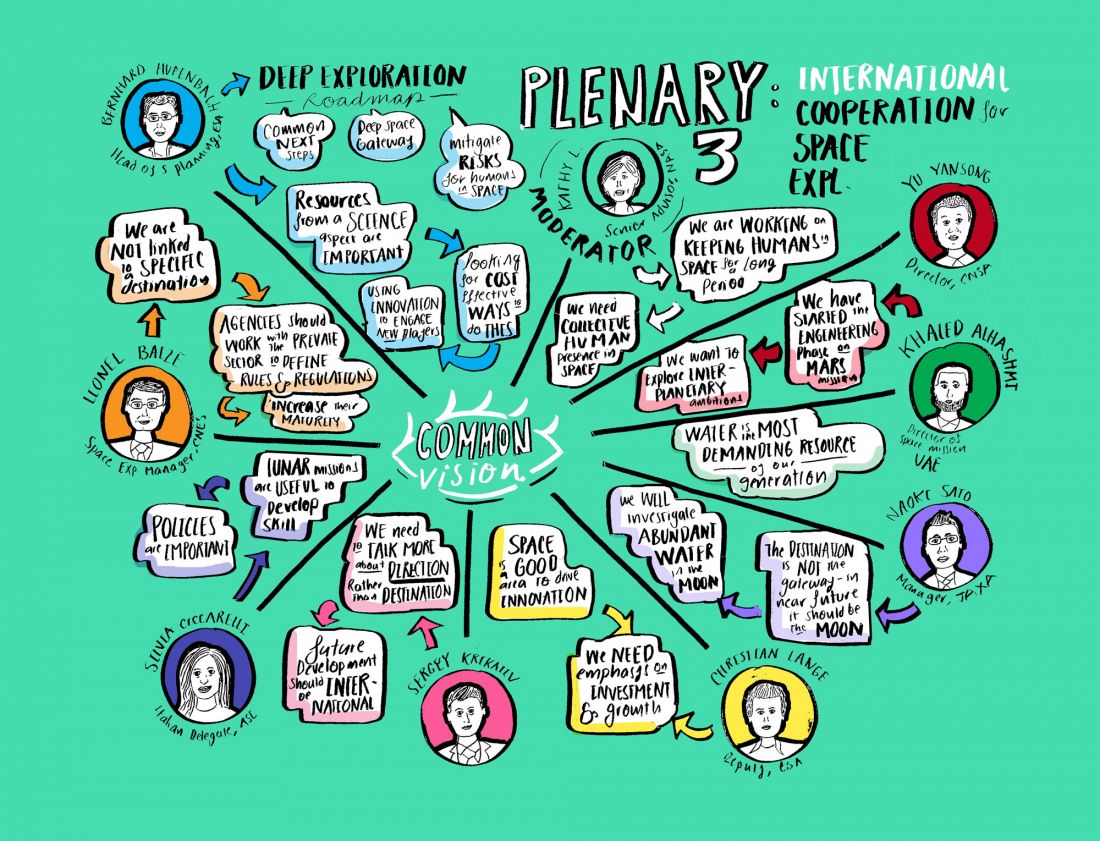 PLENARY: 3
INTERNATIONAL
COOPERATION for
SPACE
EXPL.
KATHY L.
Senior
NASA
MODERATOR
We are WORKING on
KEEPING HUMANS in
SPACE for a long
Period
We need
COLLECTIVE
HUMAN
presence in
SPACE
BERNHARD HUFENBACH
Head of S planning, ESA
DEEP EXPLORATION
Roadmap
COMMON
NEXT
steps
Deep space
Gateway
mitigate
RISKS
for humans
in SPACE
Resources
from a SCIENCE
aspect are
IMPORTANT
looking
for COST
effective
WAYS to
do THIS
USING
INNOVATION
to ENGAGE
NEW players
YU YANSONG
Director, CNSA
We have
STARTED the
ENGINEERING
Phase on
MARS
mission
We want to
Explore INTER-
PLANETARY
ambitions
KHALED ALHASHMI
Director of
Space mission
UAE
WATER is the MOST
DEMANDING RESOURCE
of our
generation
NAOKI SATO
Manager, JAXA
The DESTINATION
is NOT the
gateway - in
near future
it should be
the MOON
we WILL
investigate
ABUNDANT
WATER
in the
MOON
CHRISTIAN LANGE
Deputy, CSA
We NEED
emphasys on
INVESTMENT
& growth
SPACE
is a GOOD
area to drive
INNOVATION
SERGEY KRIKALIV
WE need
to TALK MORE
about DIRECTION
Rather
than DESTINATION
future
Development
should INTER-
be NATIONAL
SILVIA CICCARELLI
Italian Delegate, ASI
LUNAR missions
are USEFUL to
Develop
SKILL
POLICIES
are IMPORTANT
LIONEL BAIZE
Space Exp Manager, CNES
We are
NOT linked
to a SPECIFIC
destination
AGENCIES should
WORK with the PRIVATE
SECTOR to DEFINE
RULES & REGULATIONS
INCREASE their
MATURITY
COMMON
vision